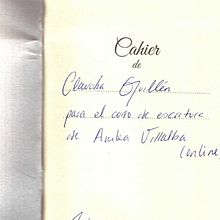 Cahier
de
Claudia Guillén
para el curso de escritura
de Anika Villalba
(online)